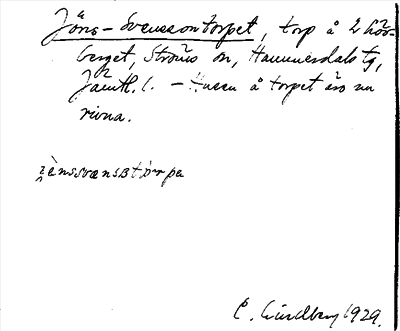 Jöns-Svensson torpet, torp å
berget, Ströms sn, Hammerdals tg,
Jämtl. l. – Husen å torpet äro nu
rivna.
E. Lindberg 1929.